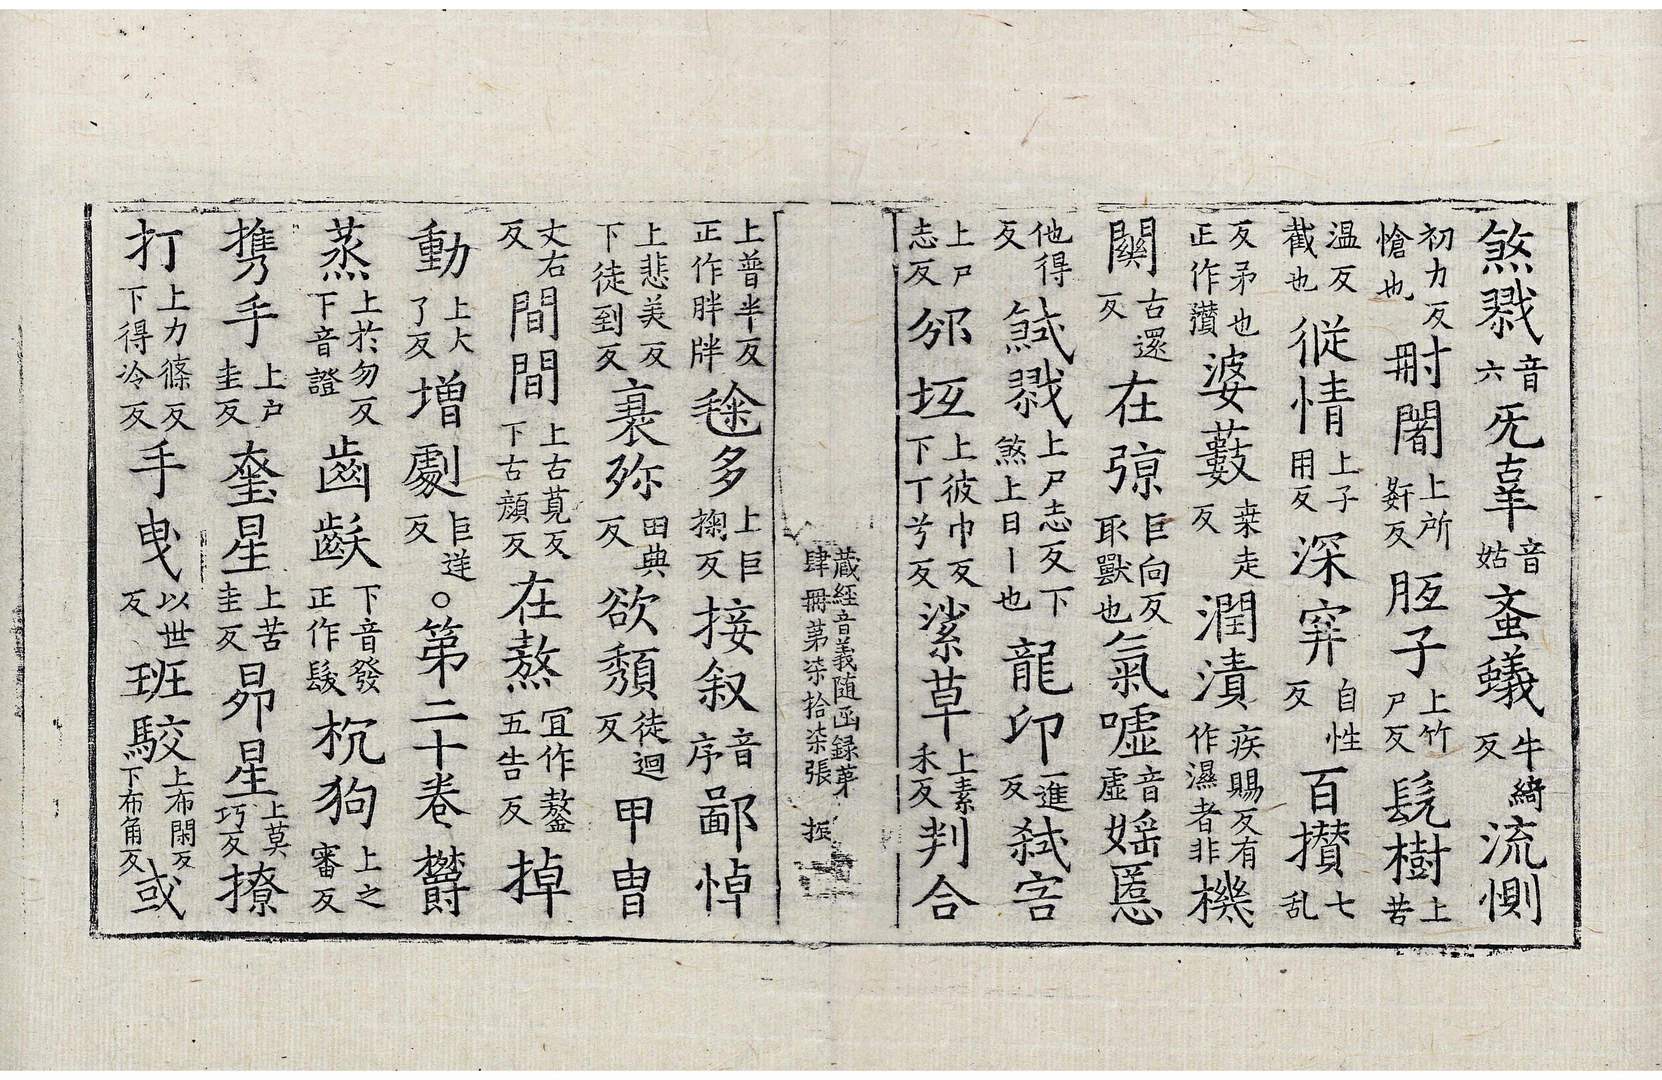 煞戮音六旡辜音姑蚤蟻牛綺反流惻
初力反愴也𠛬闍上所姧反胵子上竹尸反髡樹上苦
温反截也從情上子用反深穽自性反百攢七乱
反矛也正作㰚婆藪桒走反潤漬疾賜反有作濕者非機
關古還反在弶巨向反取獸也氣嘘音虛婬慝
他得反煞戮上尸志反下煞上日丨也龍印一進反弑害
上尸志反邠坘上彼巾反下丁兮反縤草上素禾反判合
藏經音義随凾録苐肆冊苐柒拾柒張 振
上普半反正作胖牉毱多上巨掬反接叙音序鄙悼
上悲美反下徒到反裹殄田典反欲頽徒迴反甲冑
𠀋右反間間上古莧反下古顔反在熬冝作䥝五告反掉
動上大了反增劇巨逆反○第二十卷欝
蒸上於勿反下音證齒齾下音發正作髮杌狗上之審反
㩗手上户圭反奎星上苦圭反昴星上莫巧反撩
打上力條反下得冷反手曳以世反班駮上布閑反下布角反或